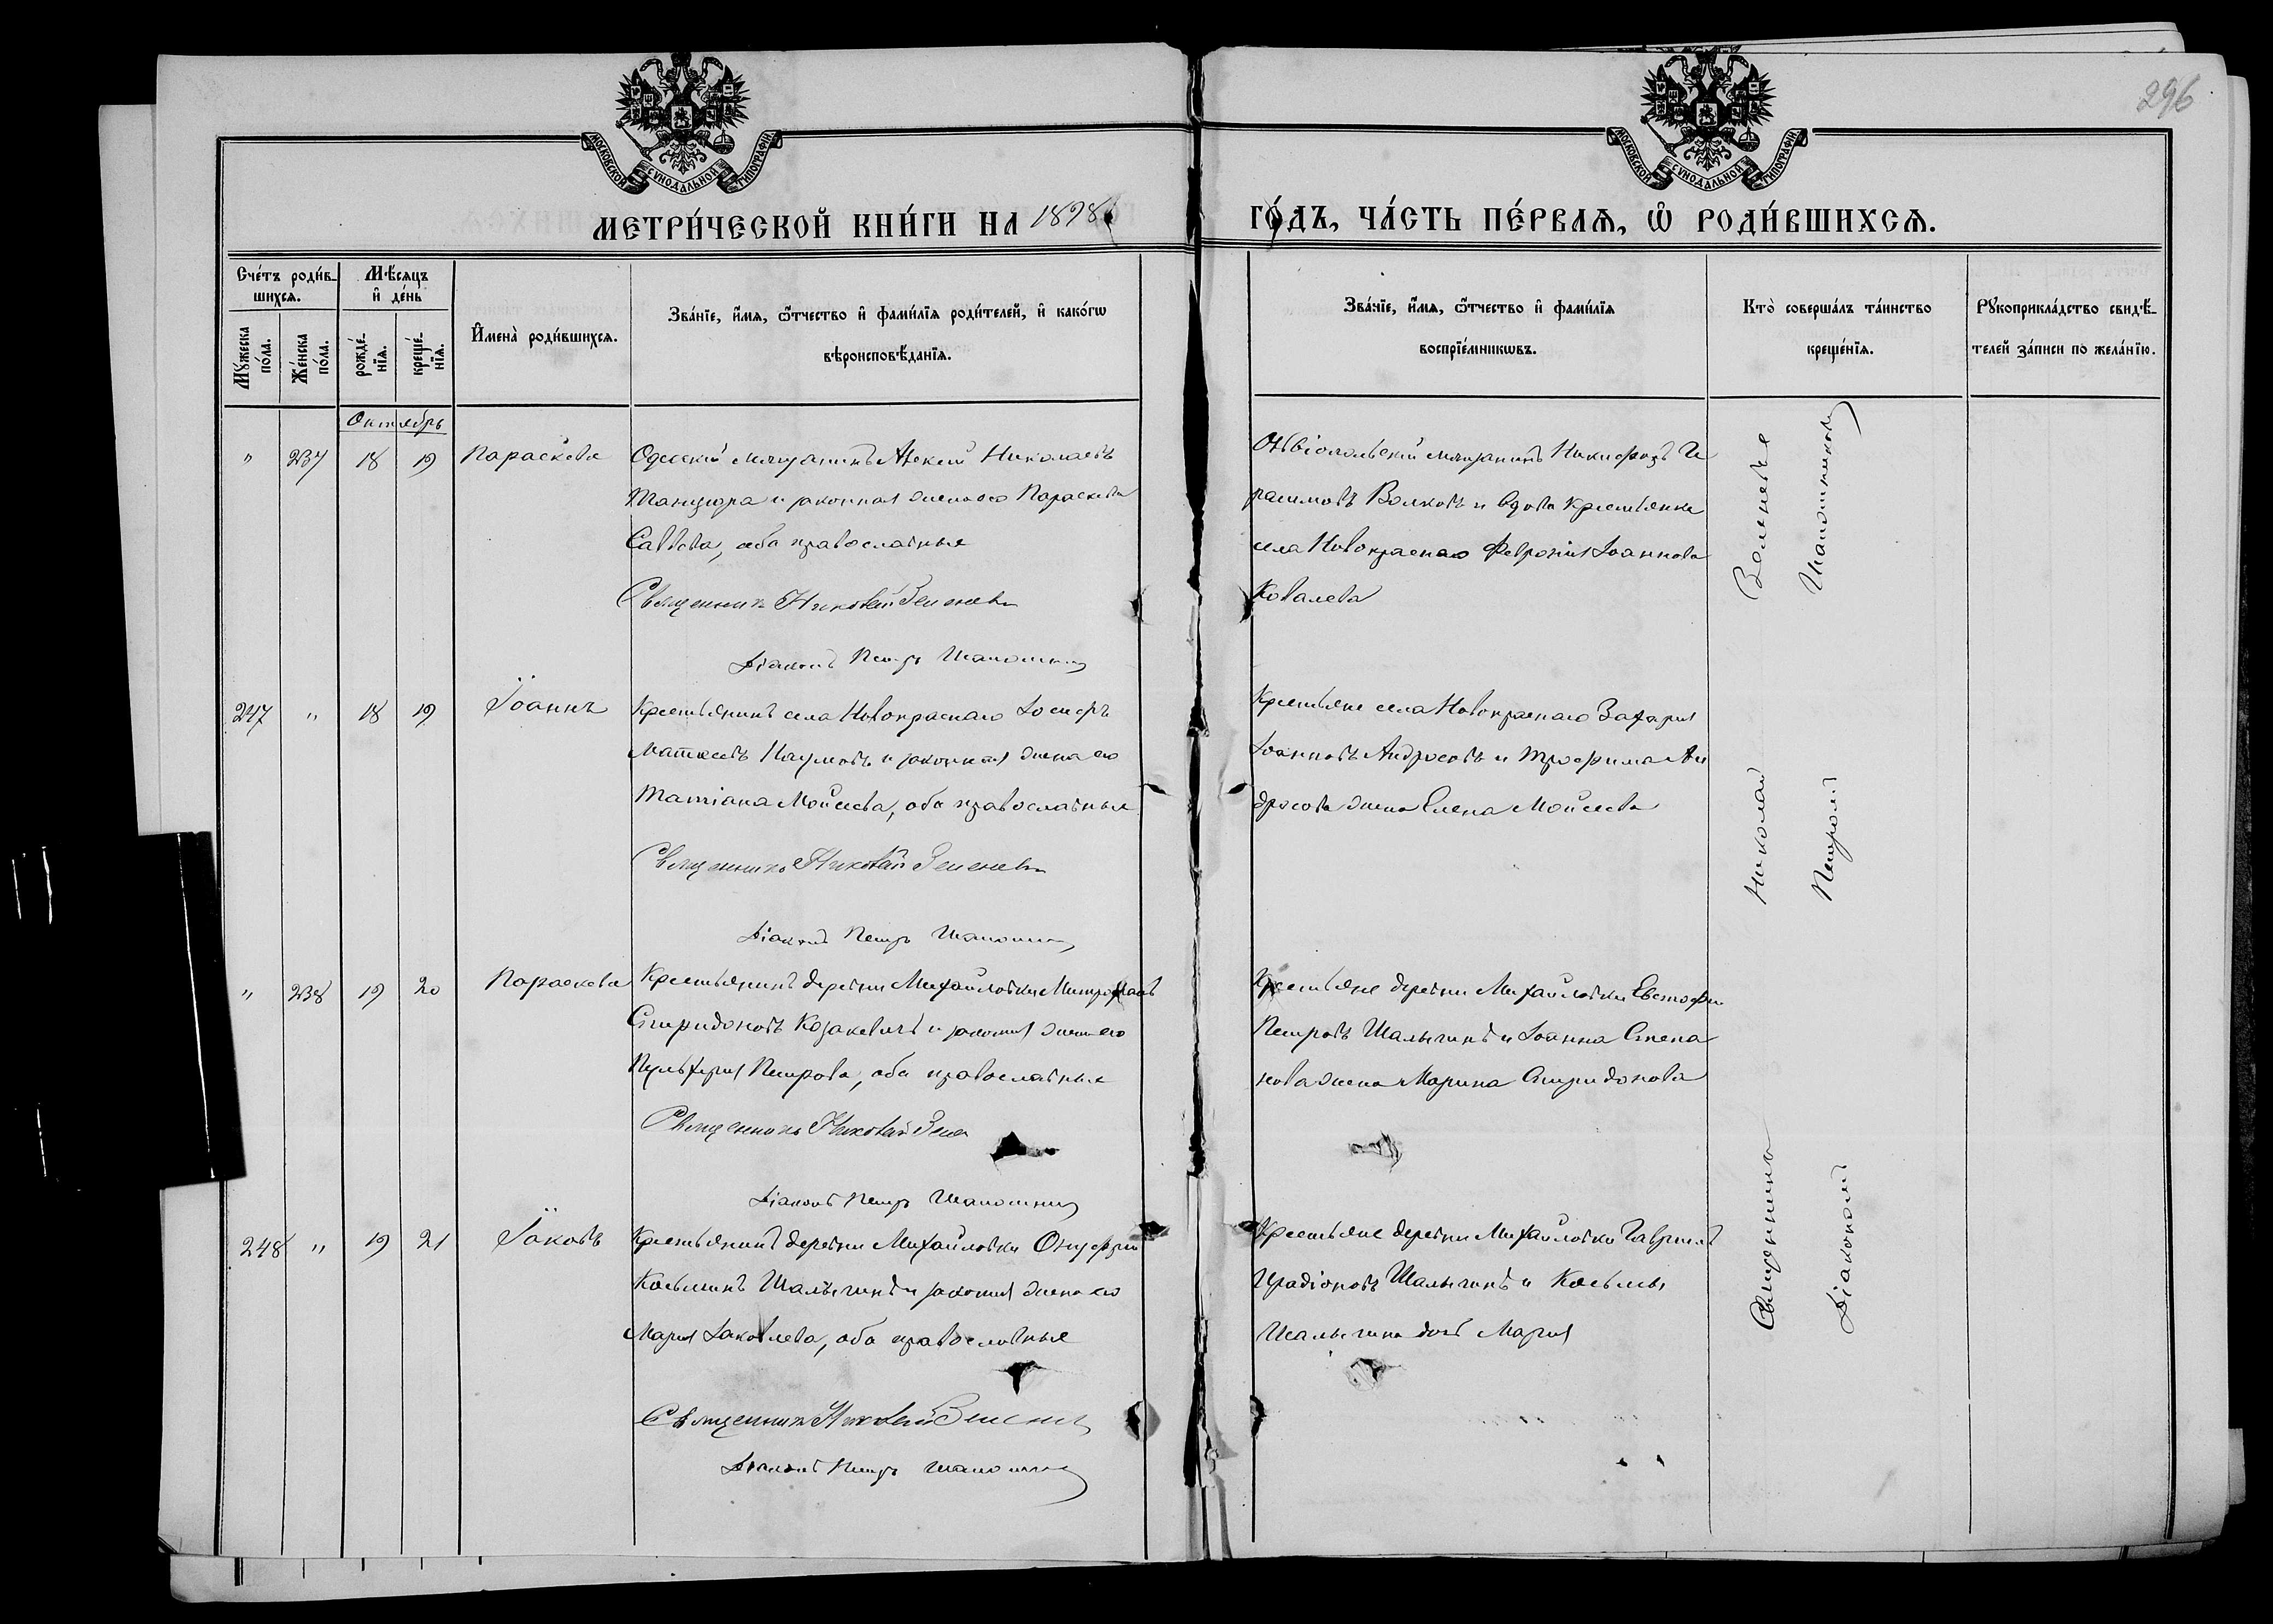 296
МОСКОВСКОЙ СѴНОДАЛЬНОЙ ТИПОГРАФІИ
МОСКОВСКОЙ СѴНОДАЛЬНОЙ ТИПОГРАФІИ
МЕТРИ́ЧЕСКОЙ КНИ́ГИ НА 1898
ГО́ДЪ, ЧА́СТЬ ПЕ́РВАЯ, Ѽ РОДИ́ВШИХСЯ.
Сче́тъ роди́в-
шихся.
Мꙋ́жеска по́ла.
Же́нска по́ла.
Мѣ́сяцъ
и҆ де́нь
рожде́-нїя.
креще́-нїя.
И҆мена̀ роди́вшихся.
Зва́нїе, и҆́мя, ѻ҆́тчество и҆ фами́лїя роди́телей, и҆ како́гѡ
вѣроисповѣ́данїя.
Зва́нїе, и҆́мя, ѻ҆́тчество и҆ фами́лїя
воспрїе́мникѡвъ.
Кто̀ соверша́лъ та́инство
креще́нїя.
Рꙋкоприкла́дство свидѣ́-
телей за́писи по жела́нїю.
Октябрь
" 237 18 19 Параскева
Одесскій мѣщанинъ Алексій Николаевъ
Танцюра и законная жена его Параскева
Саввова, оба православные
Священникъ Николай Зеленевъ
Діаконъ Петръ Шапошник
Овидіопольскій мѣщанинъ Никифоръ
Волковъ и вдова крестьянка
села Новокраснаго Феврония Іоаннова
Ковалева
247 " 18 19 Іоаннъ
Крестьянинъ села Новокраснаго Іосифъ
Матвеевъ Наумовъ и законная жена его
Татіана Мойсеева, оба православные
Священникъ Николай Зеленевъ
Діаконъ Петръ Шапошник
Крестьяне села Новокраснаго Захарія
Іоанновъ Андросовъ и Трофима Ан
дросова жена Елена Мойсеева
" 238 19 20 Параскева
Крестьянинъ деревни Михайловки Митрофанъ
Спиридоновъ Козакевичъ и законная жена его
Пульхерія Петрова, оба православные
Священникъ Николай Зеле
Діаконъ Петръ Шапошник
Крестьяне деревни Михайловки
Петровъ Шалыгинъ и Іоанна Степа
нова жена Марина Спиридонова
248 " 19 21 Іаковъ
Крестьянинъ деревни Михайловки Онуфрій
Косьминъ Шалыгинъ и законная жена его
Марія Іаковлева, оба православные
Священникъ Николай Зелене
Діаконъ Петръ Шапошник
Крестьяне деревни Михайловки Гавріилъ
Иродіоновъ Шалыгинъ и Косьмы
Шалыгина дочь Марія
Священникъ Николай Зеленевъ
Діакономъ Петромъ Шапошниковымъ